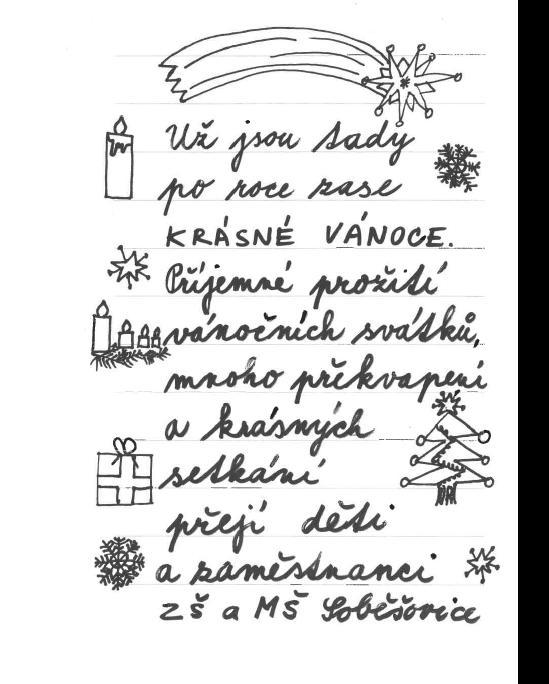 Už jsou tady
po roce zase
KRÁSNÉ VÁNOCE.
Příjemné prožití
vánočních svátků,
mnoho překvapení
a krásných
setkání
přejí děti
a zaměstnanci
ZŠ a MŠ Soběšovice